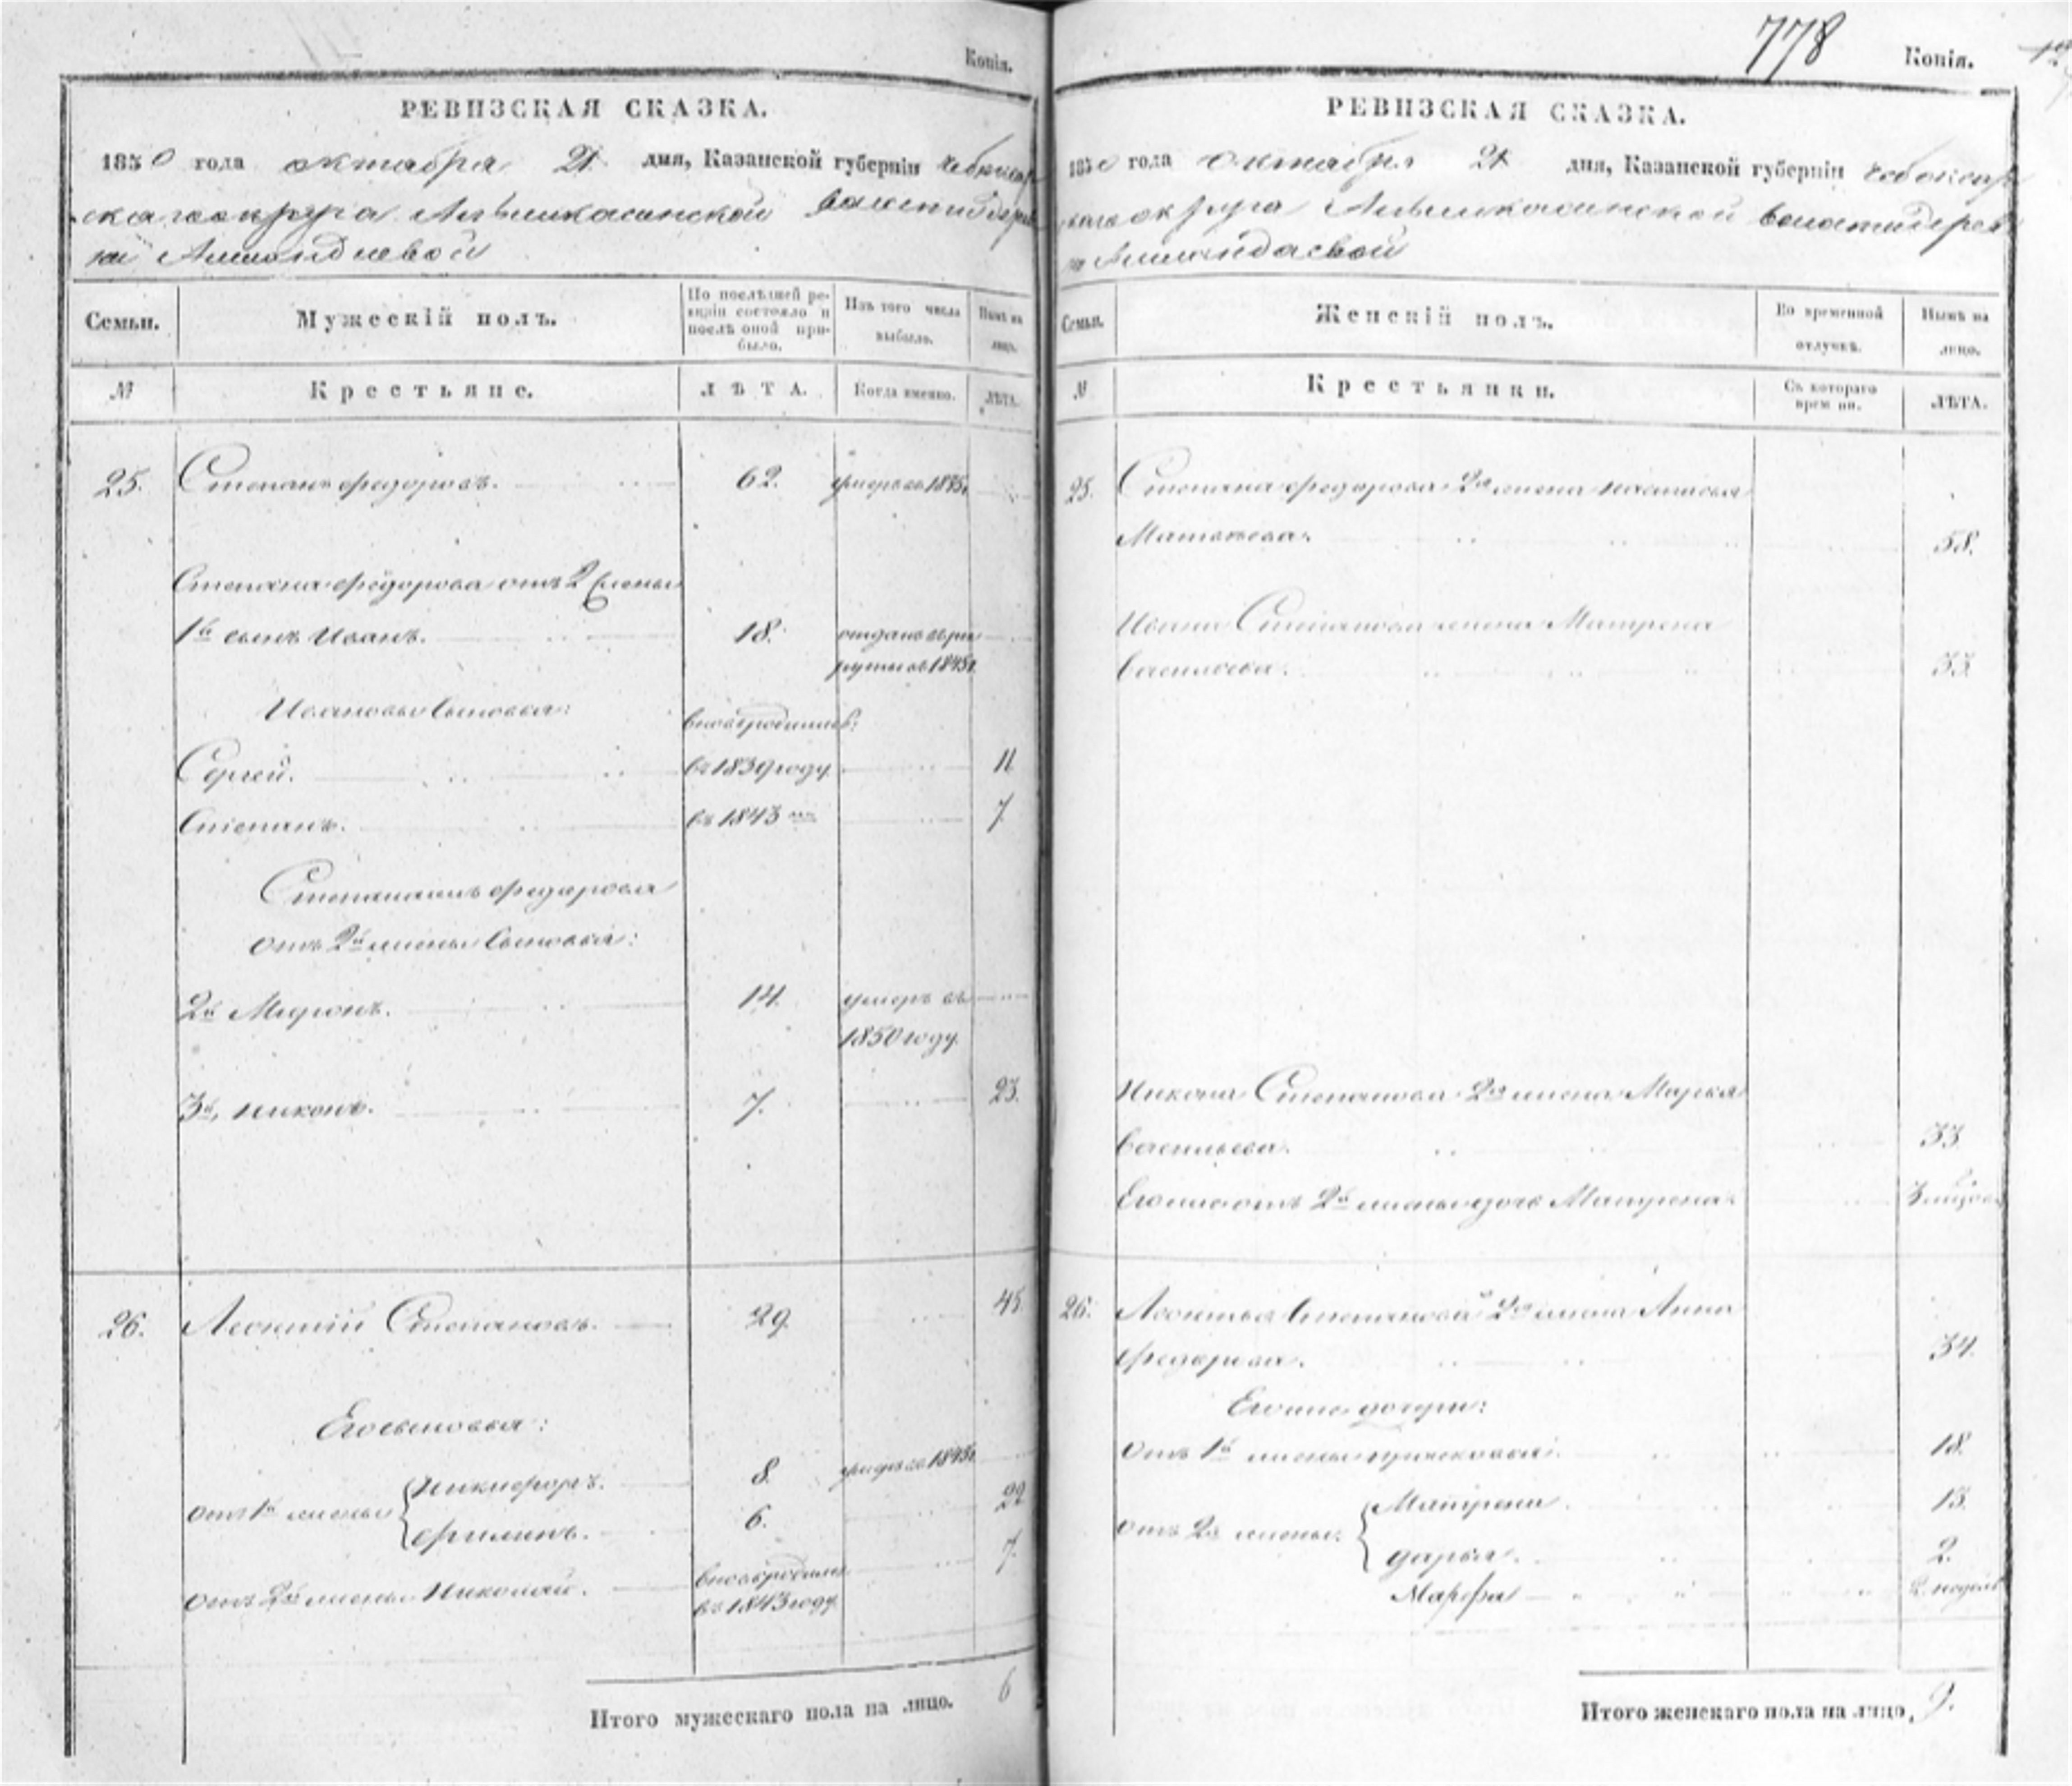 Копія.
РЕВИЗСКАЯ СКАЗКА.
1850 года октября 21 дня, Казанской губерніи Чебоксар
скаго округа Алымкасинской волости дерев
ни
Семьи.
Мужескій полъ.
По послѣдней ре-
визіи состояло и
послѣ оной при-
было.
Изъ того числа
выбыло.
Нынѣ на
лицо.
№
Крестьяне.
ЛѢТА.
Когда именно.
ЛѢТА.
25. Степанъ Федоровъ. 62. умеръ въ 1845г.
Степана Федорова отъ 2 жены
1й сынъ Иванъ. 18. отданъ въ рек
руты въ 1845г.
Ивановы сыновья: вновь родились:
Сергей. въ 1839 году 11
Степанъ. въ 1843 7
Федорова
отъ 2й жены сыновья:
2й Миронъ. 14. умеръ въ
1850 году.
3й Никонъ. 7. 23.
26. Леонтий Степановъ. 29. 45.
Его сыновья:
отъ 1й жены Никифоръ. 8.
Филипъ. 6. 22
отъ 2й жены Николай. вновь родился
въ 1843 году. 7.
Итого мужескаго пола на лицо. 6
778
Копія.
РЕВИЗСКАЯ СКАЗКА.
1850 года Октября 21 дня, Казанской губерніи Чебоксар
скаго округа Алымкасинской волости дерев
ни
Семьи.
Женскій полъ.
Во временной
отлучкѣ.
Нынѣ на
лицо.
№
Крестьянки.
Съ котораго
времени.
ЛѢТА.
25. Степана Федорова 2я жена Настасья
Матвеева. 58.
Ивана Степанова жена Матрена
Васильева. 33.
Никона Степанова 2я жена Марья
Васильева. 33.
Его же отъ 2й жены дочь Матрена. 3
26. Леонтья Степанова 2я жена Анна
Федорова. 34.
Его же дочери:
отъ 1й жены 18.
отъ 2й жены: Матрена. 13.
дарья. 2.
Марфа 2 недели
Итого женскаго пола на лицо, 9.